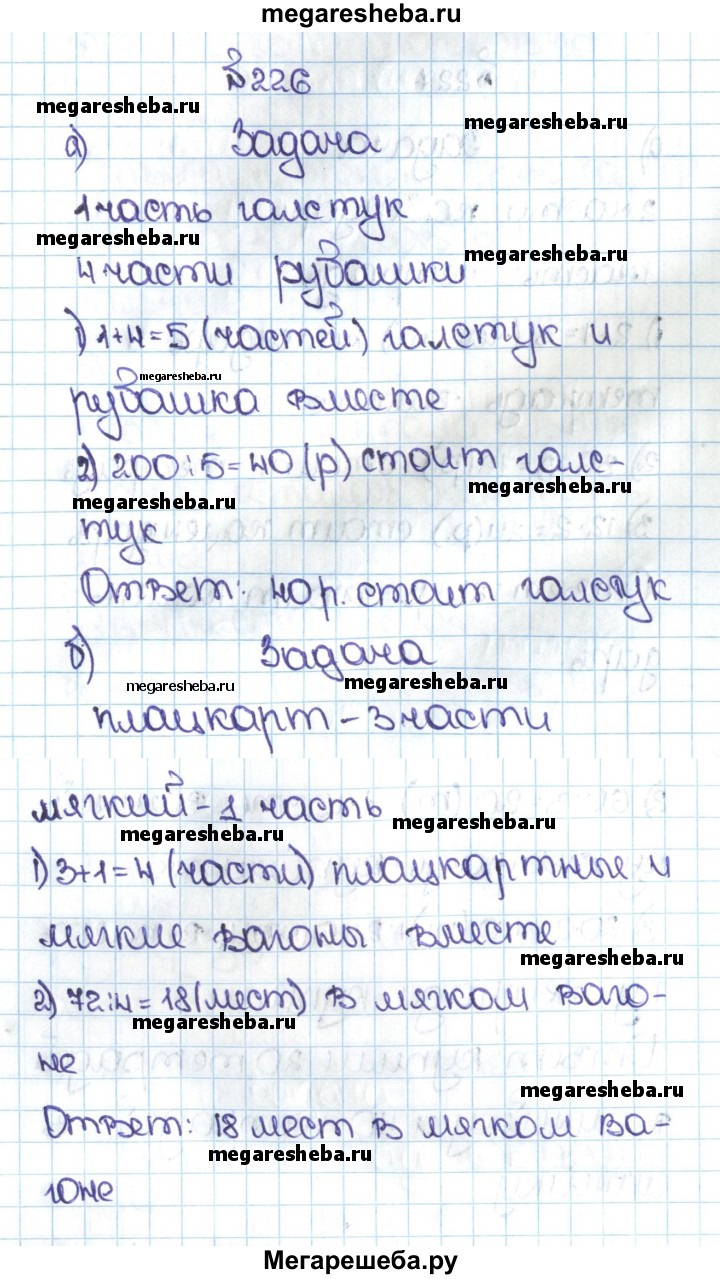 megaresheba.ru
№226
megaresheba.ru
megaresheba.ru
а) Задача
1 часть галстук
megaresheba.ru
megaresheba.ru
4 части рубашки
1) 1+4=5 (частей) галстук и
megaresheba.ru
рубашка вместе
2) 200:5=40 (р) стоит галс-
megaresheba.ru
megaresheba.ru
тук
Ответ: 40 р. стоит галстук
б) Задача
megaresheba.ru
megaresheba.ru
плацкарт – 3 части
мягкий – 1 часть
megaresheba.ru
megaresheba.ru
1) 3+1=4 (части) плацкартные и
мягкие вагоны вместе
megaresheba.ru
2) 72:4=18 (мест) в мягком ваго-
megaresheba.ru
не
megaresheba.ru
Ответ: 18 мест в мягком ва-
megaresheba.ru
гоне
Мегарешеба.ру